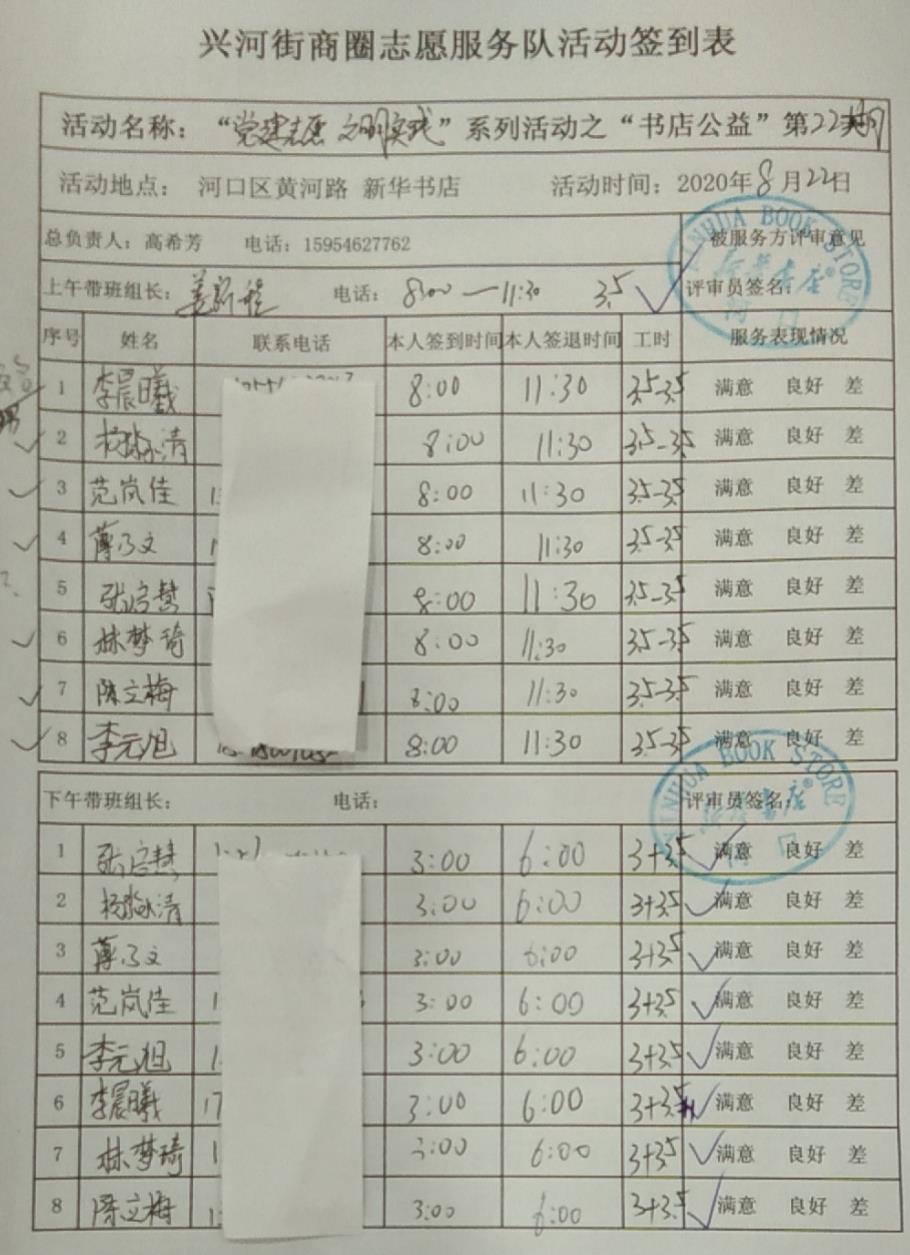 兴河街商圈志愿服务队活动签到表
活动名称：“党建志愿 文明实践”系列活动之“书店公益”第22期
活动地点： 河口区黄河路 新华书店 活动时间：2020年8月22日
总负责人：高希芳 电话：15954627762 被服务方评审意见
上午带班组长： 电话： 8:00—11:30 3.5 ✓ 评审员签名：
XINHUA BOOK STORE
新华书店
河口
序号 姓名 联系电话 本人签到时间 本人签退时间 工时 服务表现情况
1 李晨曦 8:00 11:30 3.5-3.5 满意 良好 差
✓ 2 杨淼清 8:00 11:30 3.5-3.5 满意 良好 差
✓ 3 范岚佳 8:00 11:30 3.5-3.5 满意 良好 差
✓ 4 薄乃文 8:00 11:30 3.5-3.5 满意 良好 差
5 张启慧 8:00 11:30 3.5-3.5 满意 良好 差
✓ 6 林梦琦 8:00 11:30 3.5-3.5 满意 良好 差
✓ 7 陈立梅 8:00 11:30 3.5-3.5 满意 良好 差
✓ 8 李元旭 8:00 11:30 3.5-3.5 满意 良好 差
下午带班组长： 电话： 评审员签名：
XINHUA BOOK STORE
新华书店
河口
1 张启慧 3:00 6:00 3+3.5 ✓ 满意 良好 差
2 杨淼清 3:00 6:00 3+3.5 ✓ 满意 良好 差
3 薄乃文 3:00 6:00 3+3.5 ✓ 满意 良好 差
4 范岚佳 3:00 6:00 3+3.5 ✓ 满意 良好 差
5 李元旭 3:00 6:00 3+3.5 ✓ 满意 良好 差
6 李晨曦 17 3:00 6:00 3+3.5 ✓ 满意 良好 差
7 林梦琦 3:00 6:00 3+3.5 ✓ 满意 良好 差
8 陈立梅 3:00 6:00 3+3.5 ✓ 满意 良好 差